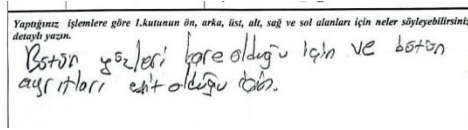 Yaptığınız işlemlere göre 1.kutunun ön, arka, üst, alt, sağ ve sol alanları için neler söyleyebilirsiniz
detaylı yazın.
Bütün yüzleri kare olduğu için ve bütün
ayrıtları eşit olduğu için.